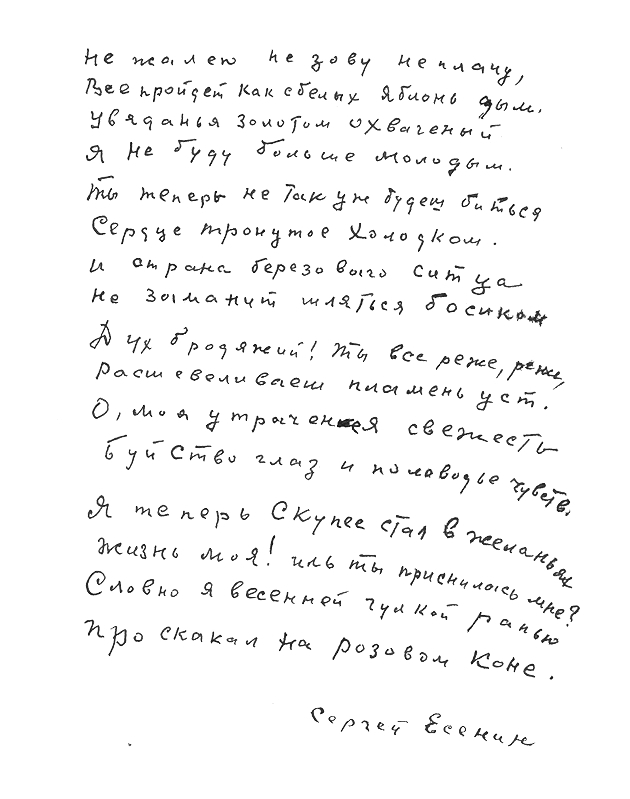 Не жалею не зову не плачу,
Все пройдет как с белых яблонь дым.
Увяданья золотом охваченый
Я не буду больше молодым.
Ты теперь не так уж будеш биться
Сердце тронутое холодком.
И страна березовыго ситца
Не заманит шляться босиком
Дух бродяжий! Ты все реже, реже,
Расшевеливаеш пламень уст.
О, моя утраченая свежесть
Буйство глаз и половодье чувств.
Я теперь скупее стал в желаньях
Жизнь моя! иль ты приснилась мне?
Словно я весенней гулкой ранью
Проскакал на розовом коне.
Сергей Есенин